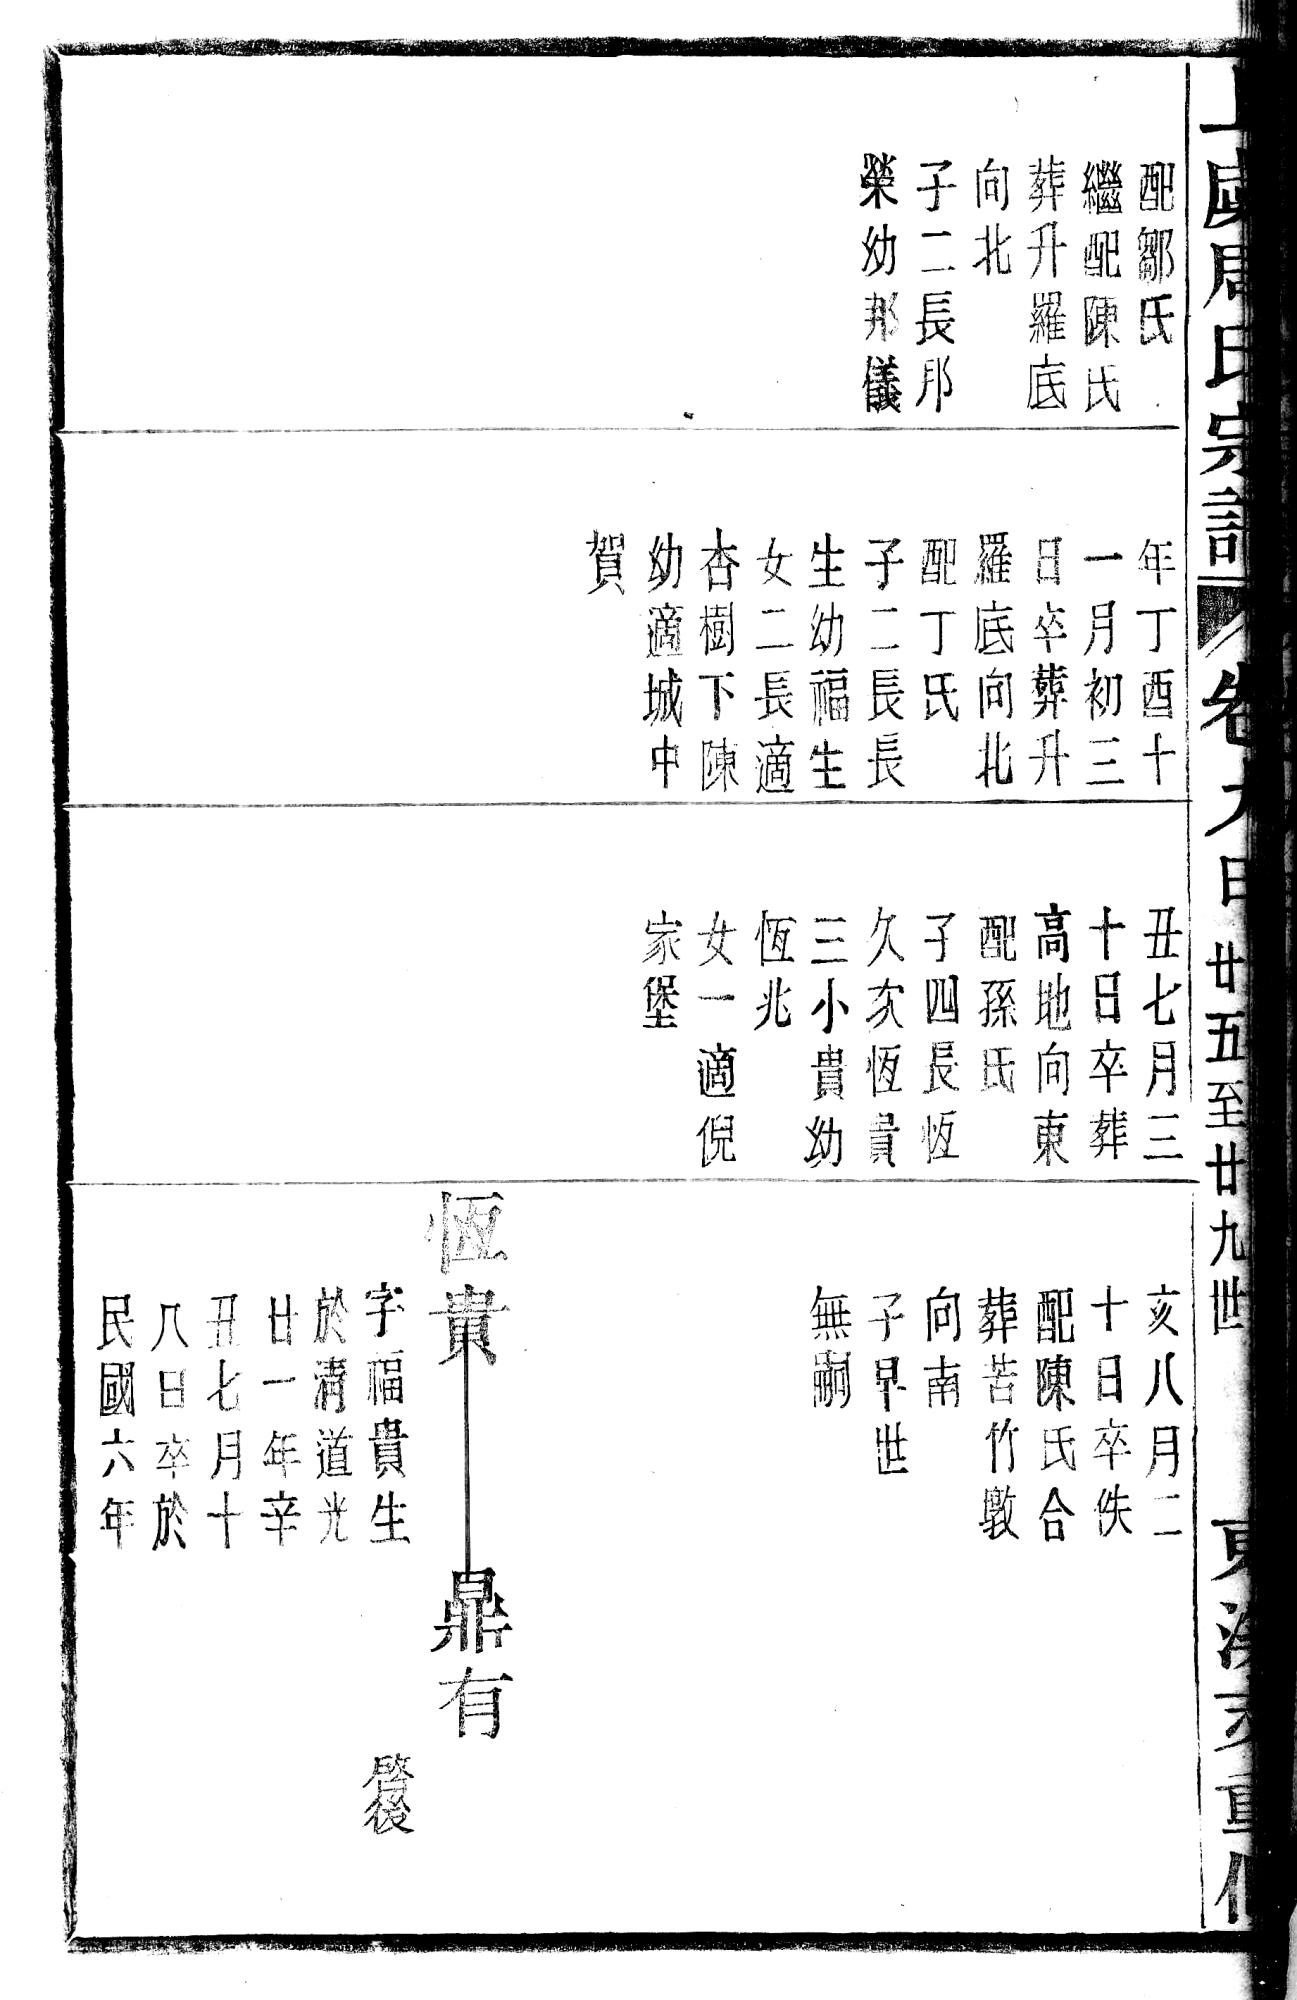 周氏宗譜 卷九 廿五至廿九世 重修
配鄒氏
繼配陳氏
葬升羅底
向北
子二長邦
榮幼邦儀
年丁酉十
一月初三
日卒葬升
羅底向北
配丁氏
子二長長
生幼福生
女二長適
杏樹下陳
幼適城中
賀
丑七月三
十日卒葬
高地向東
配孫氏
子四長恆
久次恆貴
三小貴幼
恆兆
女一適倪
家堡
亥八月二
十日卒佚
配陳氏合
葬苦竹墩
向南
子早世
無嗣
恆貴
字福貴生
於清道光
廿一年辛
丑七月十
八日卒於
民國六年
鼎有
啓後